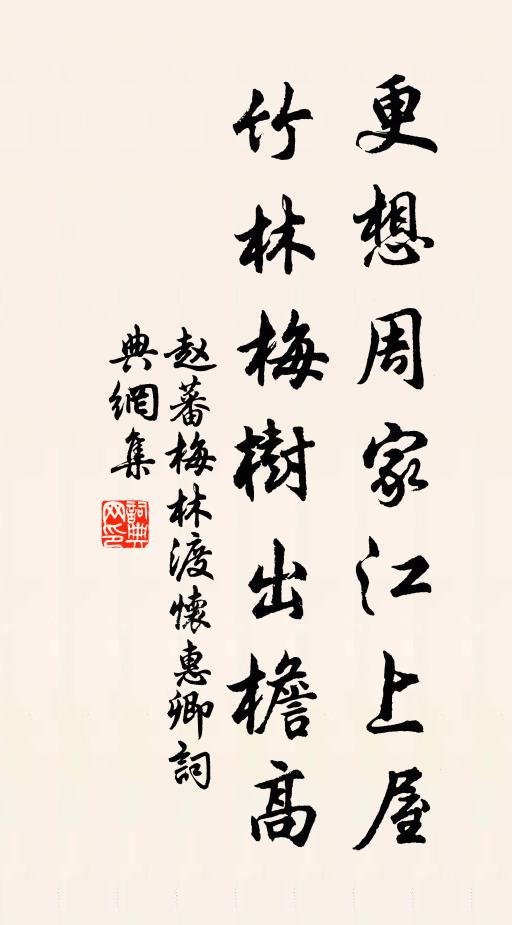 更想周家江上屋
竹林梅樹出檐高
赵蕃梅林渡懷惠卿詞
典網集
詞典网印